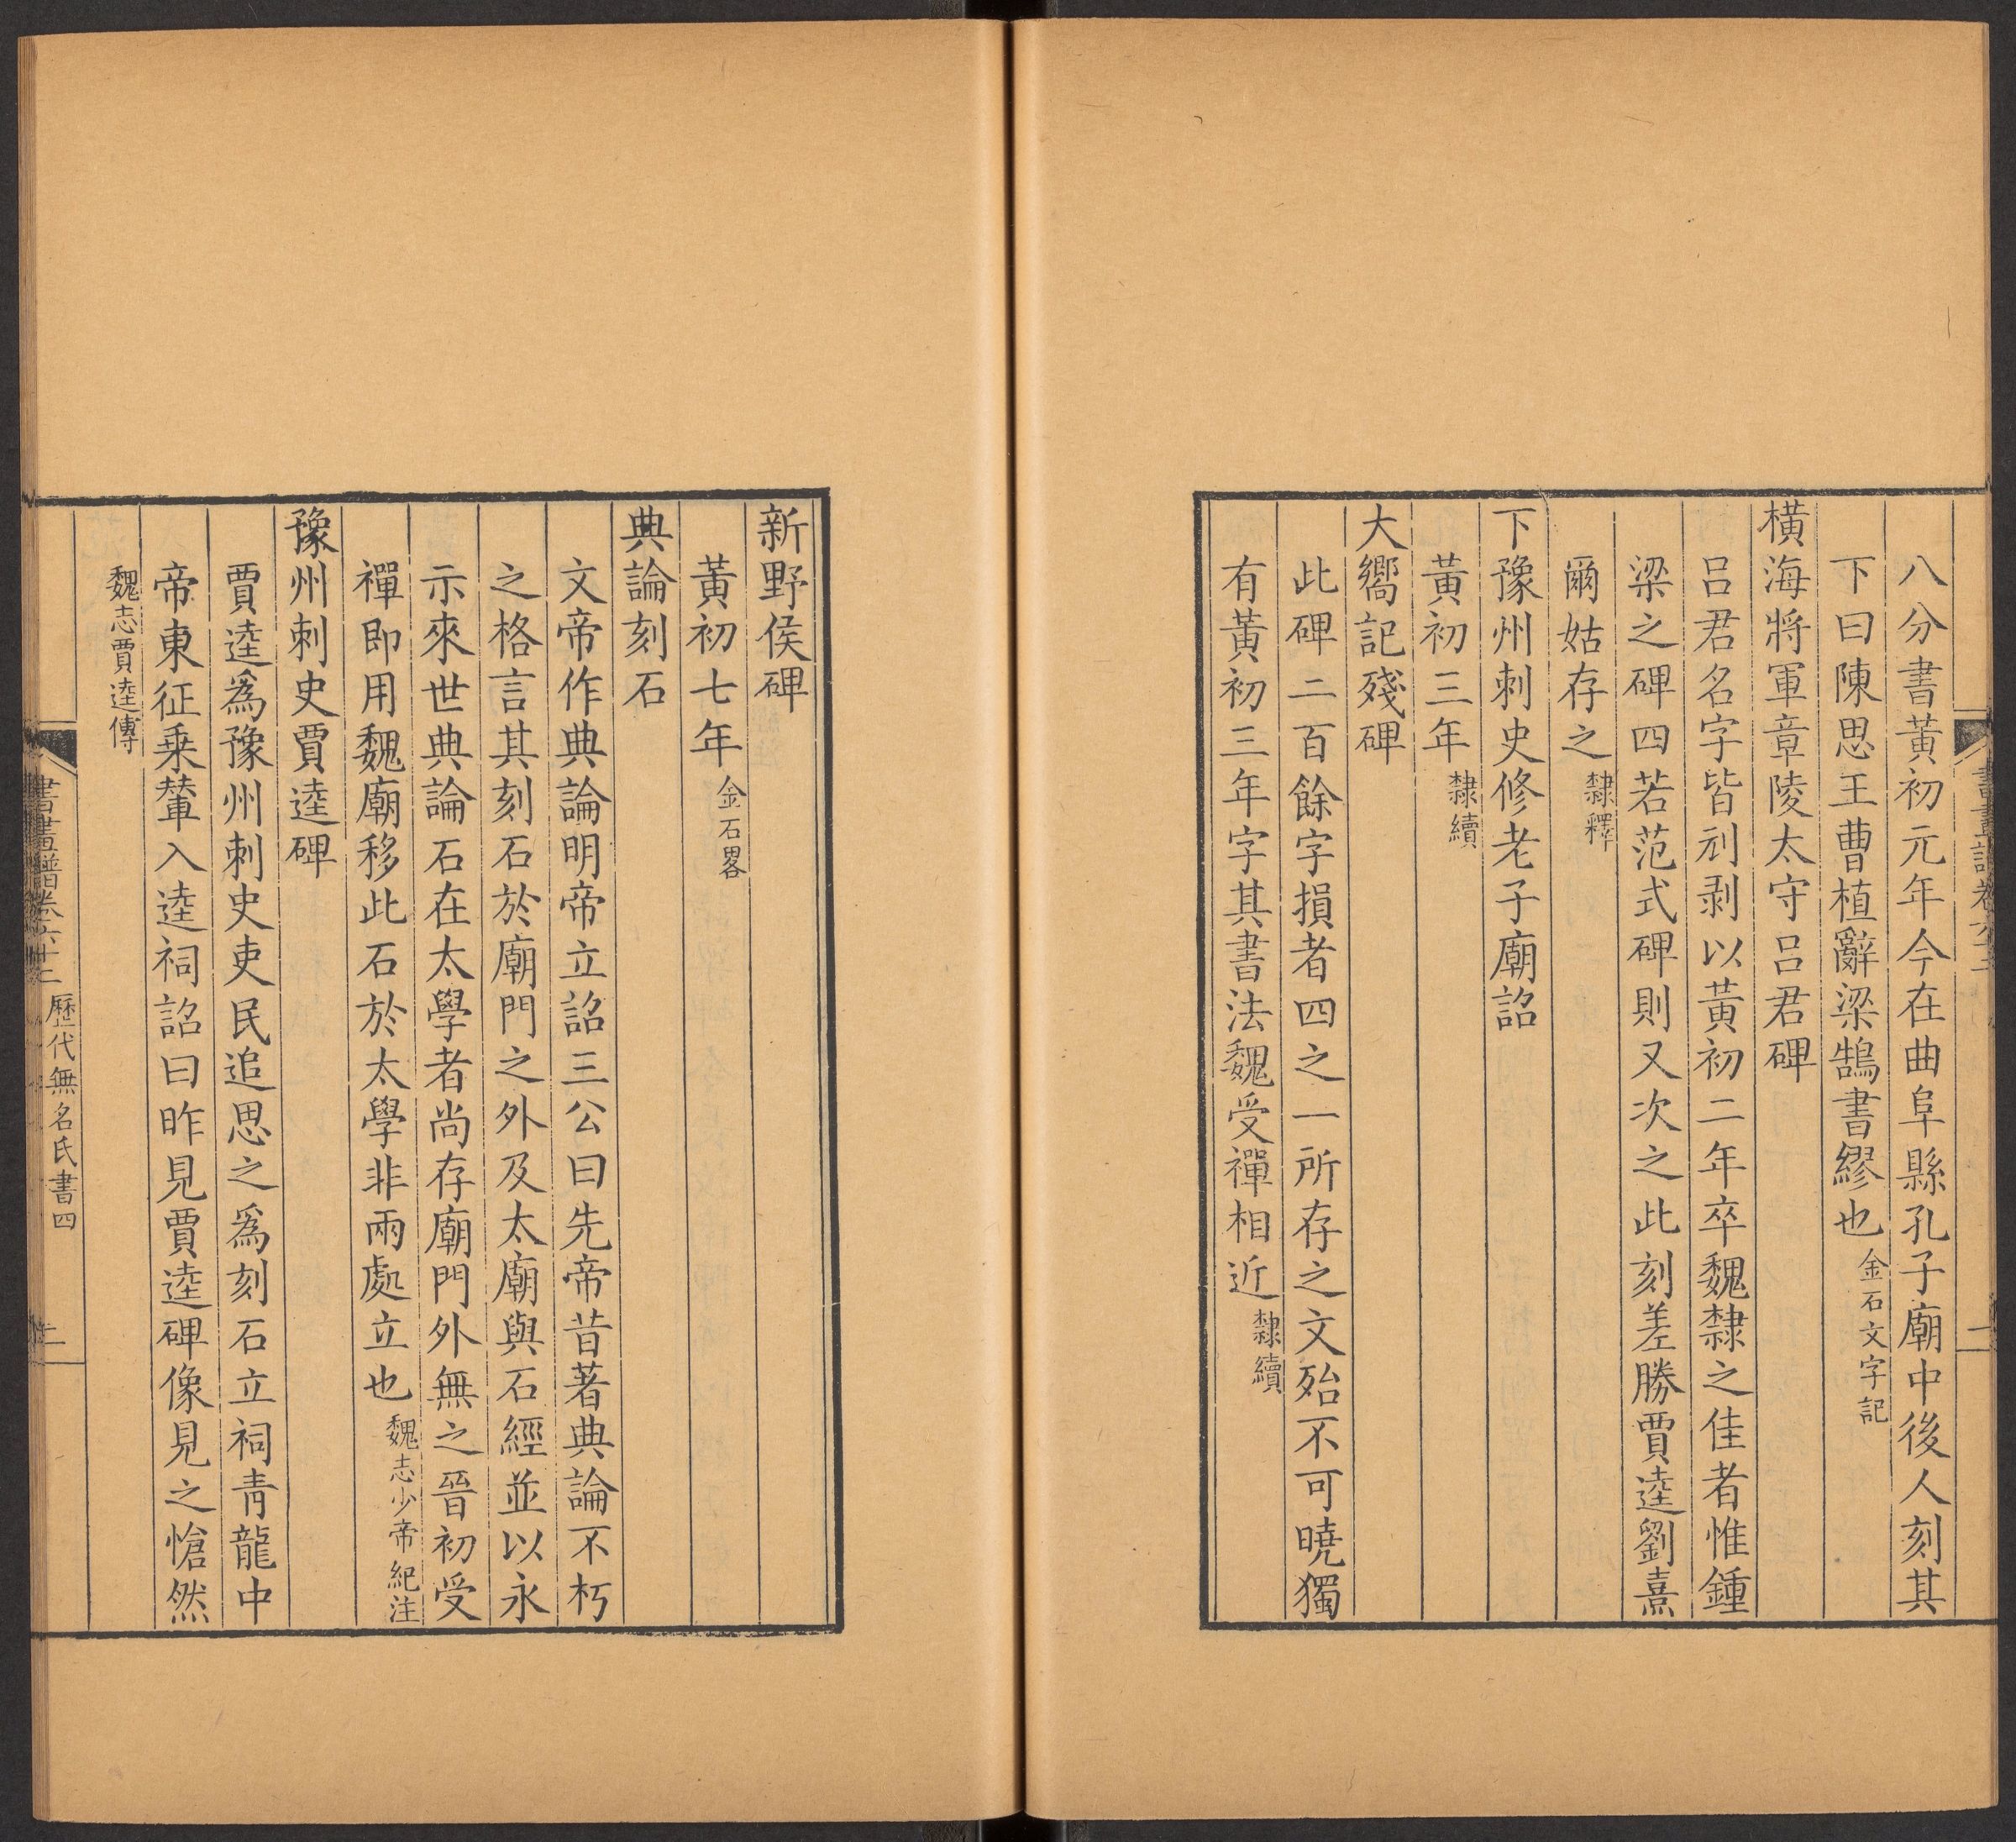 八分書黃初元年今在曲阜縣孔子廟中後人刻其
下曰陳思王曹植辭梁鵠書繆也金石文字記
橫海將軍章陵太守呂君碑
呂君名字皆刓剥以黃初二年卒魏隸之佳者惟鍾
梁之碑四若范式碑則又次之此刻差勝賈逵劉熹
爾姑存之隸釋
下豫州刺史修老子廟詔
黃初三年隸續
大嚮記殘碑
此碑二百餘字損者四之一所存之文殆不可曉獨
有黃初三年字其書法魏受禪相近隸續
新野侯碑
黃初七年金石畧
典論刻石
文帝作典論明帝立詔三公曰先帝昔著典論不朽
之格言其刻石於廟門之外及太廟與石經並以永
示來世典論石在太學者尚存廟門外無之晉初受
禪即用魏廟移此石於太學非兩處立也魏志少帝紀注
豫州刺史賈逵碑
賈逵爲豫州刺史吏民追思之爲刻石立祠青龍中
帝東征乗輦入逵祠詔曰昨見賈逵碑像見之愴然
魏志賈逵傳
書畫譜卷六十二 歷代無名氏書四 二